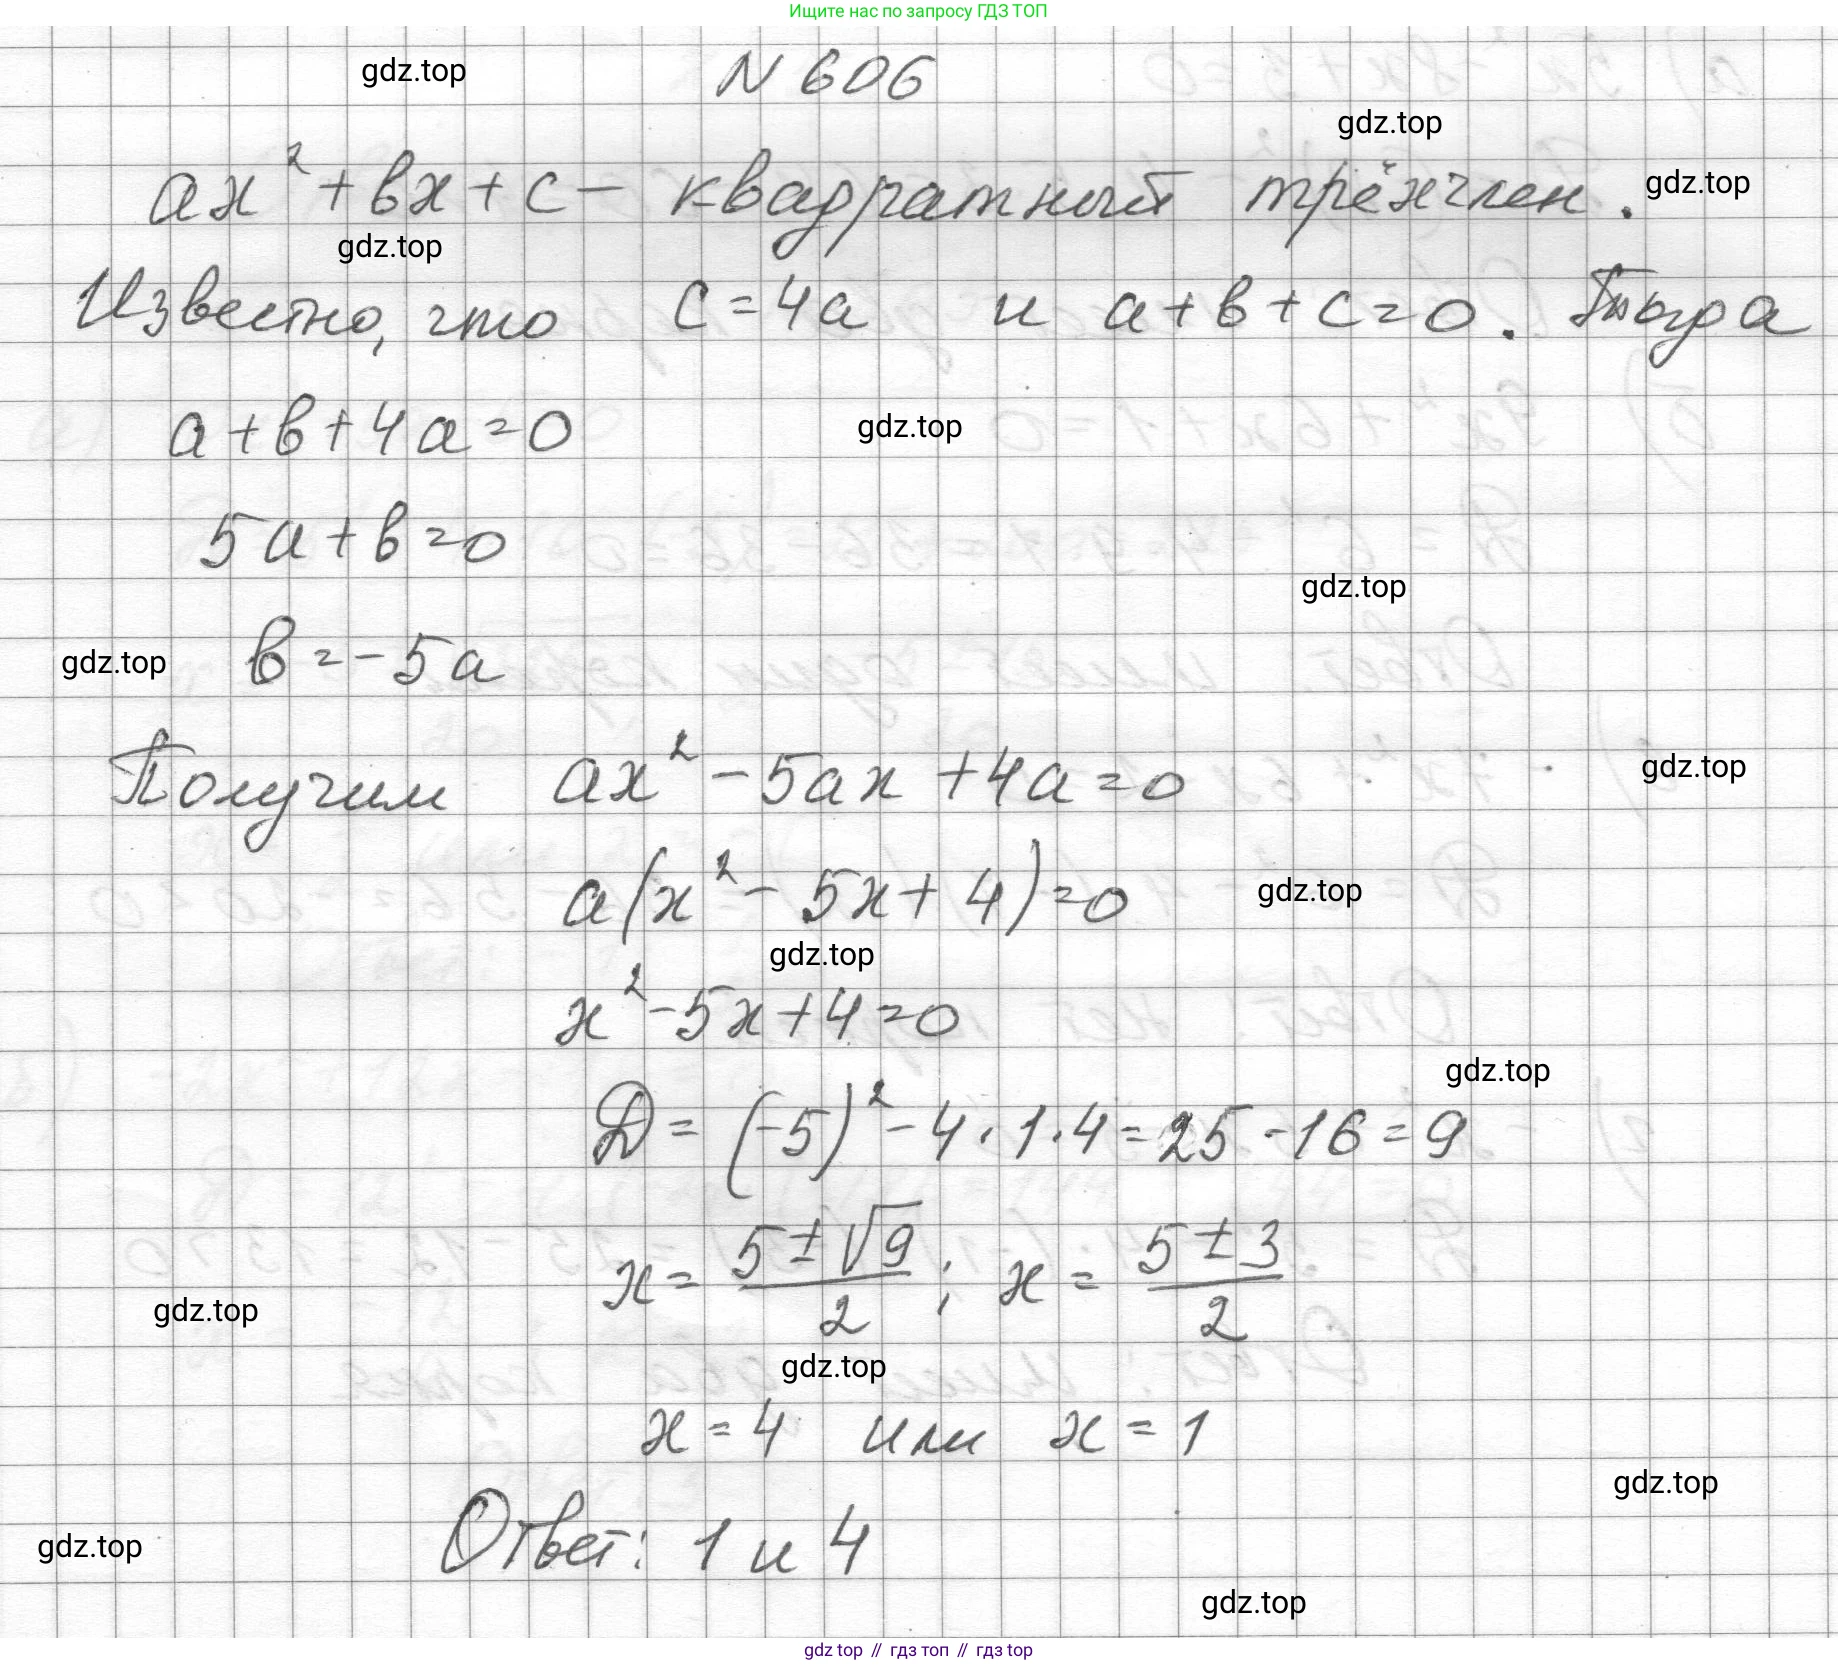 Ищите нас по запросу ГДЗ ТОП
gdz.top
N 606
gdz.top
ax² + вx + c – квадратный трёхчлен.
gdz.top
gdz.top
Известно, что c = 4a и a + в + c = 0. Тогда
a + в + 4a = 0
gdz.top
5a + в = 0
gdz.top
gdz.top
в = -5a
Получим ax² - 5ax + 4a = 0
gdz.top
a(x² - 5x + 4) = 0
gdz.top
gdz.top
x² - 5x + 4 = 0
gdz.top
D = (-5)² - 4 · 1 · 4 = 25 - 16 = 9
x = (5 ± √9)/2 ; x = (5 ± 3)/2
gdz.top
gdz.top
x = 4 или x = 1
gdz.top
Ответ: 1 и 4
gdz.top
gdz.top
gdz top // гдз топ // гдз top